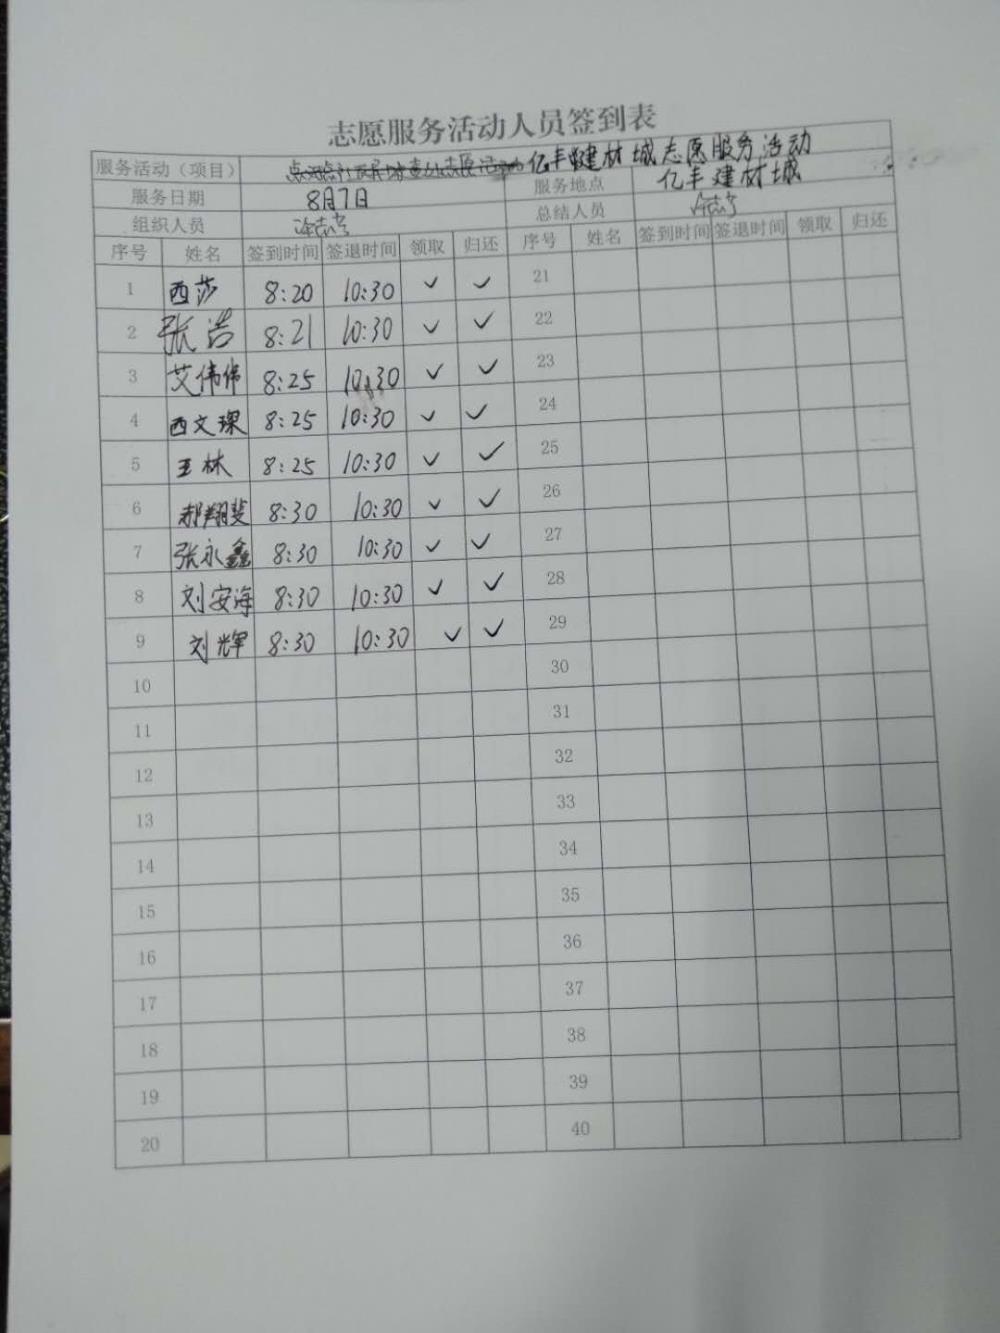 志愿服务活动人员签到表
服务活动（项目） 亿丰建材城志愿服务活动
服务日期 8月7日 服务地点 亿丰建材城
组织人员 总结人员
序号 姓名 签到时间 签退时间 领取 归还 序号 姓名 签到时间 签退时间 领取 归还
1 西莎 8:20 10:30 ✓ ✓ 21
2 张浩 8:21 10:30 ✓ ✓ 22
3 艾伟伟 8:25 10:30 ✓ ✓ 23
4 西文琛 8:25 10:30 ✓ ✓ 24
5 王林 8:25 10:30 ✓ ✓ 25
6 郝翔斐 8:30 10:30 ✓ ✓ 26
7 张永鑫 8:30 10:30 ✓ ✓ 27
8 刘安海 8:30 10:30 ✓ ✓ 28
9 刘辉 8:30 10:30 ✓ ✓ 29
10 30
11 31
12 32
13 33
14 34
15 35
16 36
17 37
18 38
19 39
20 40